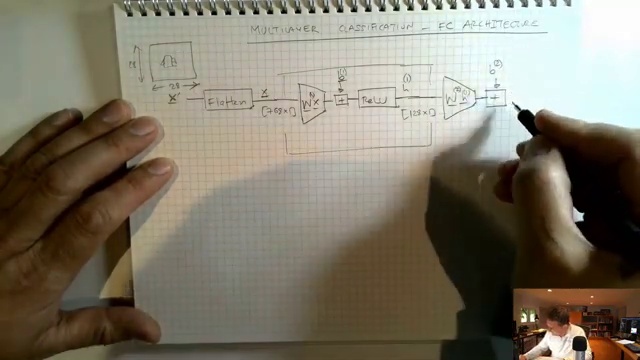 MULTILAYER CLASSIFICATION - FC ARCHITECTURE
28
28
x'
Flatten
x
[768x1]
W(1) x
b(1)
+
ReLU
h(1)
[128x1]
W(2) h(1)
b(2)
+